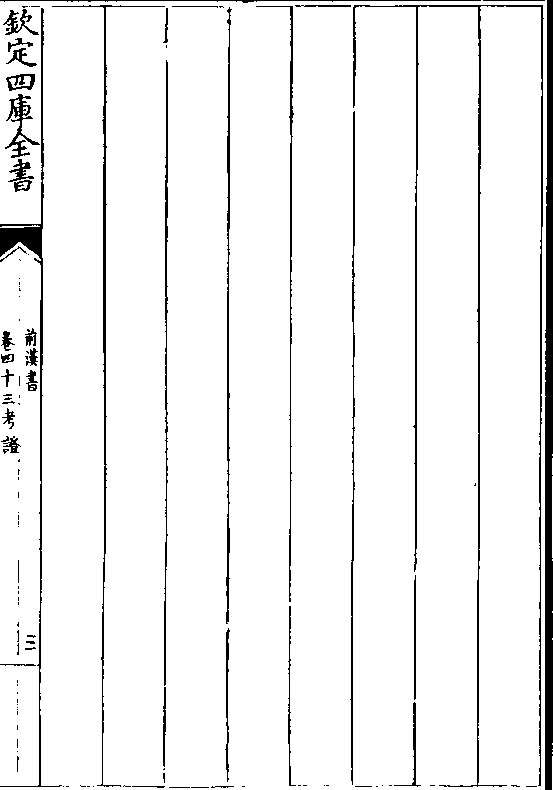 欽定四庫全書
前漢書
卷四十三考證
三